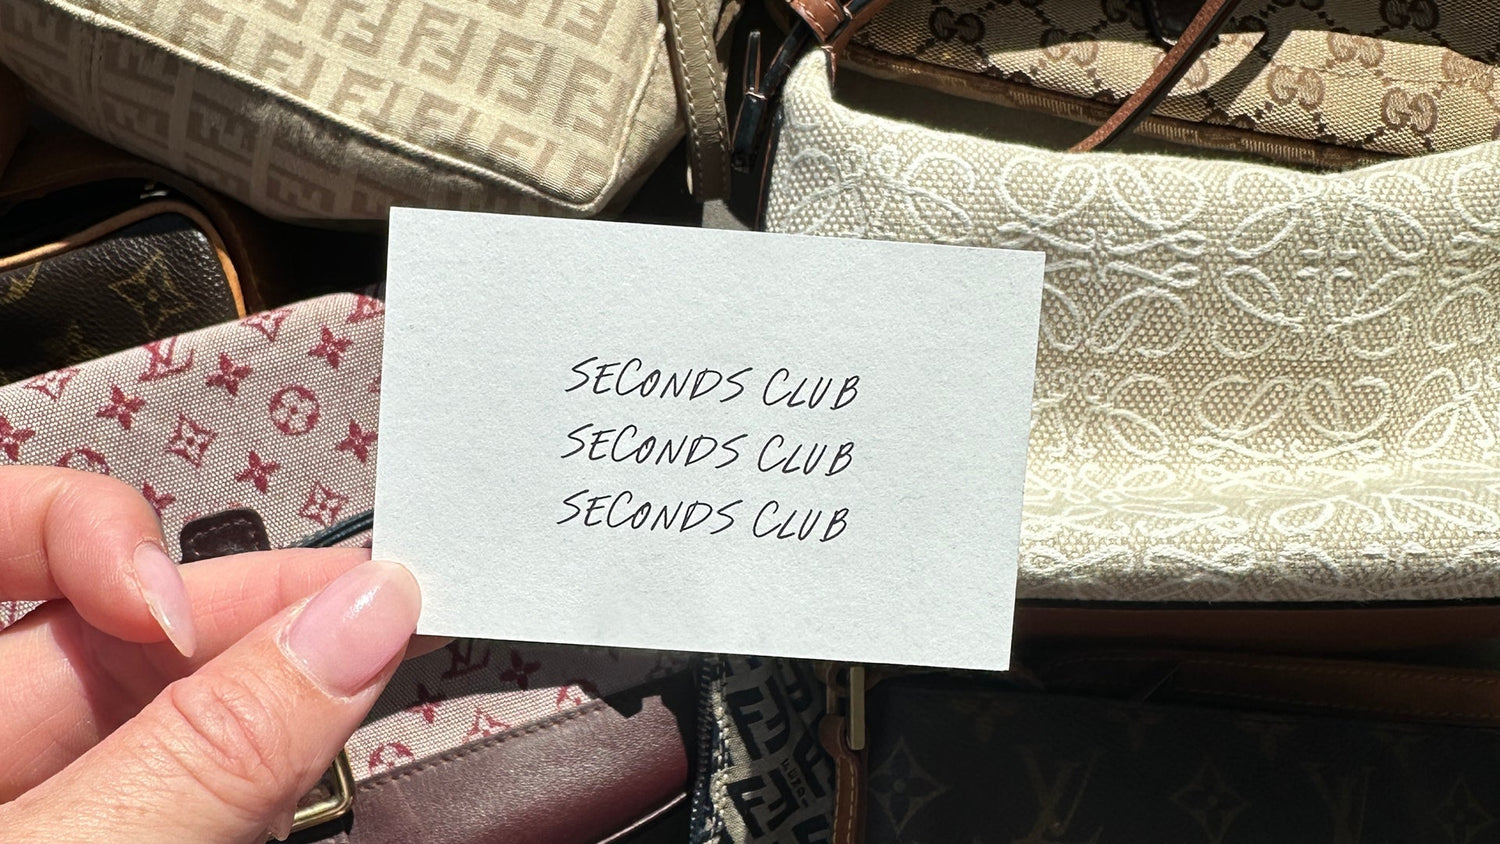 SECONDS CLUB
SECONDS CLUB
SECONDS CLUB